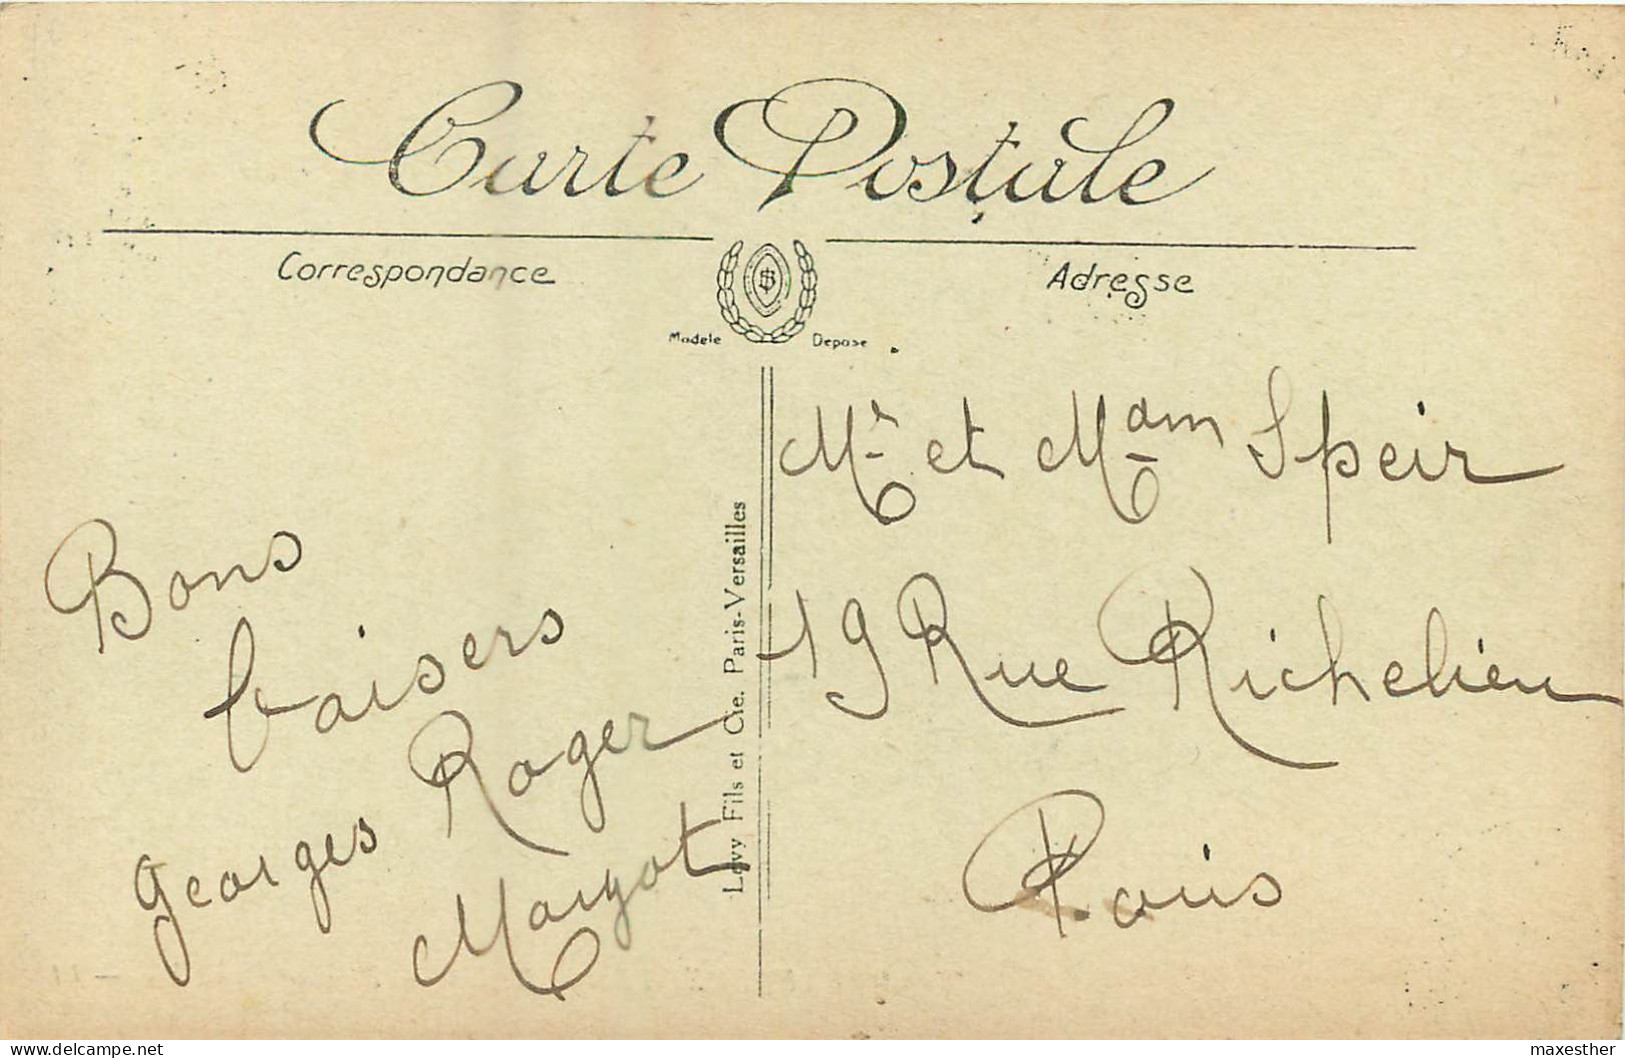 Carte Postale
Correspondance
Adresse
Modele
Depose
Bons
baisers
Georges Roger
Margot
Levy Fils et Cie. Paris-Versailles
Mr et Mdam Speir
19 Rue Richelieu
Paris
www.delcampe.net
maxesther